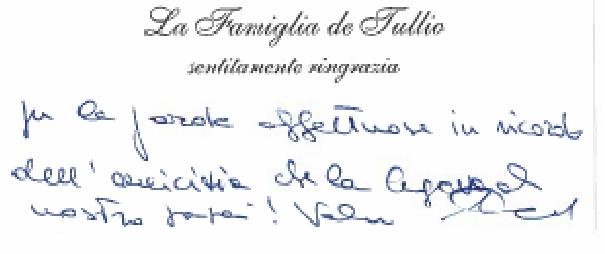 La Famiglia de Tullio
sentitamente ringrazia
per le parole affettuose in ricordo
dell'amicizia che la legava al
nostro papà!